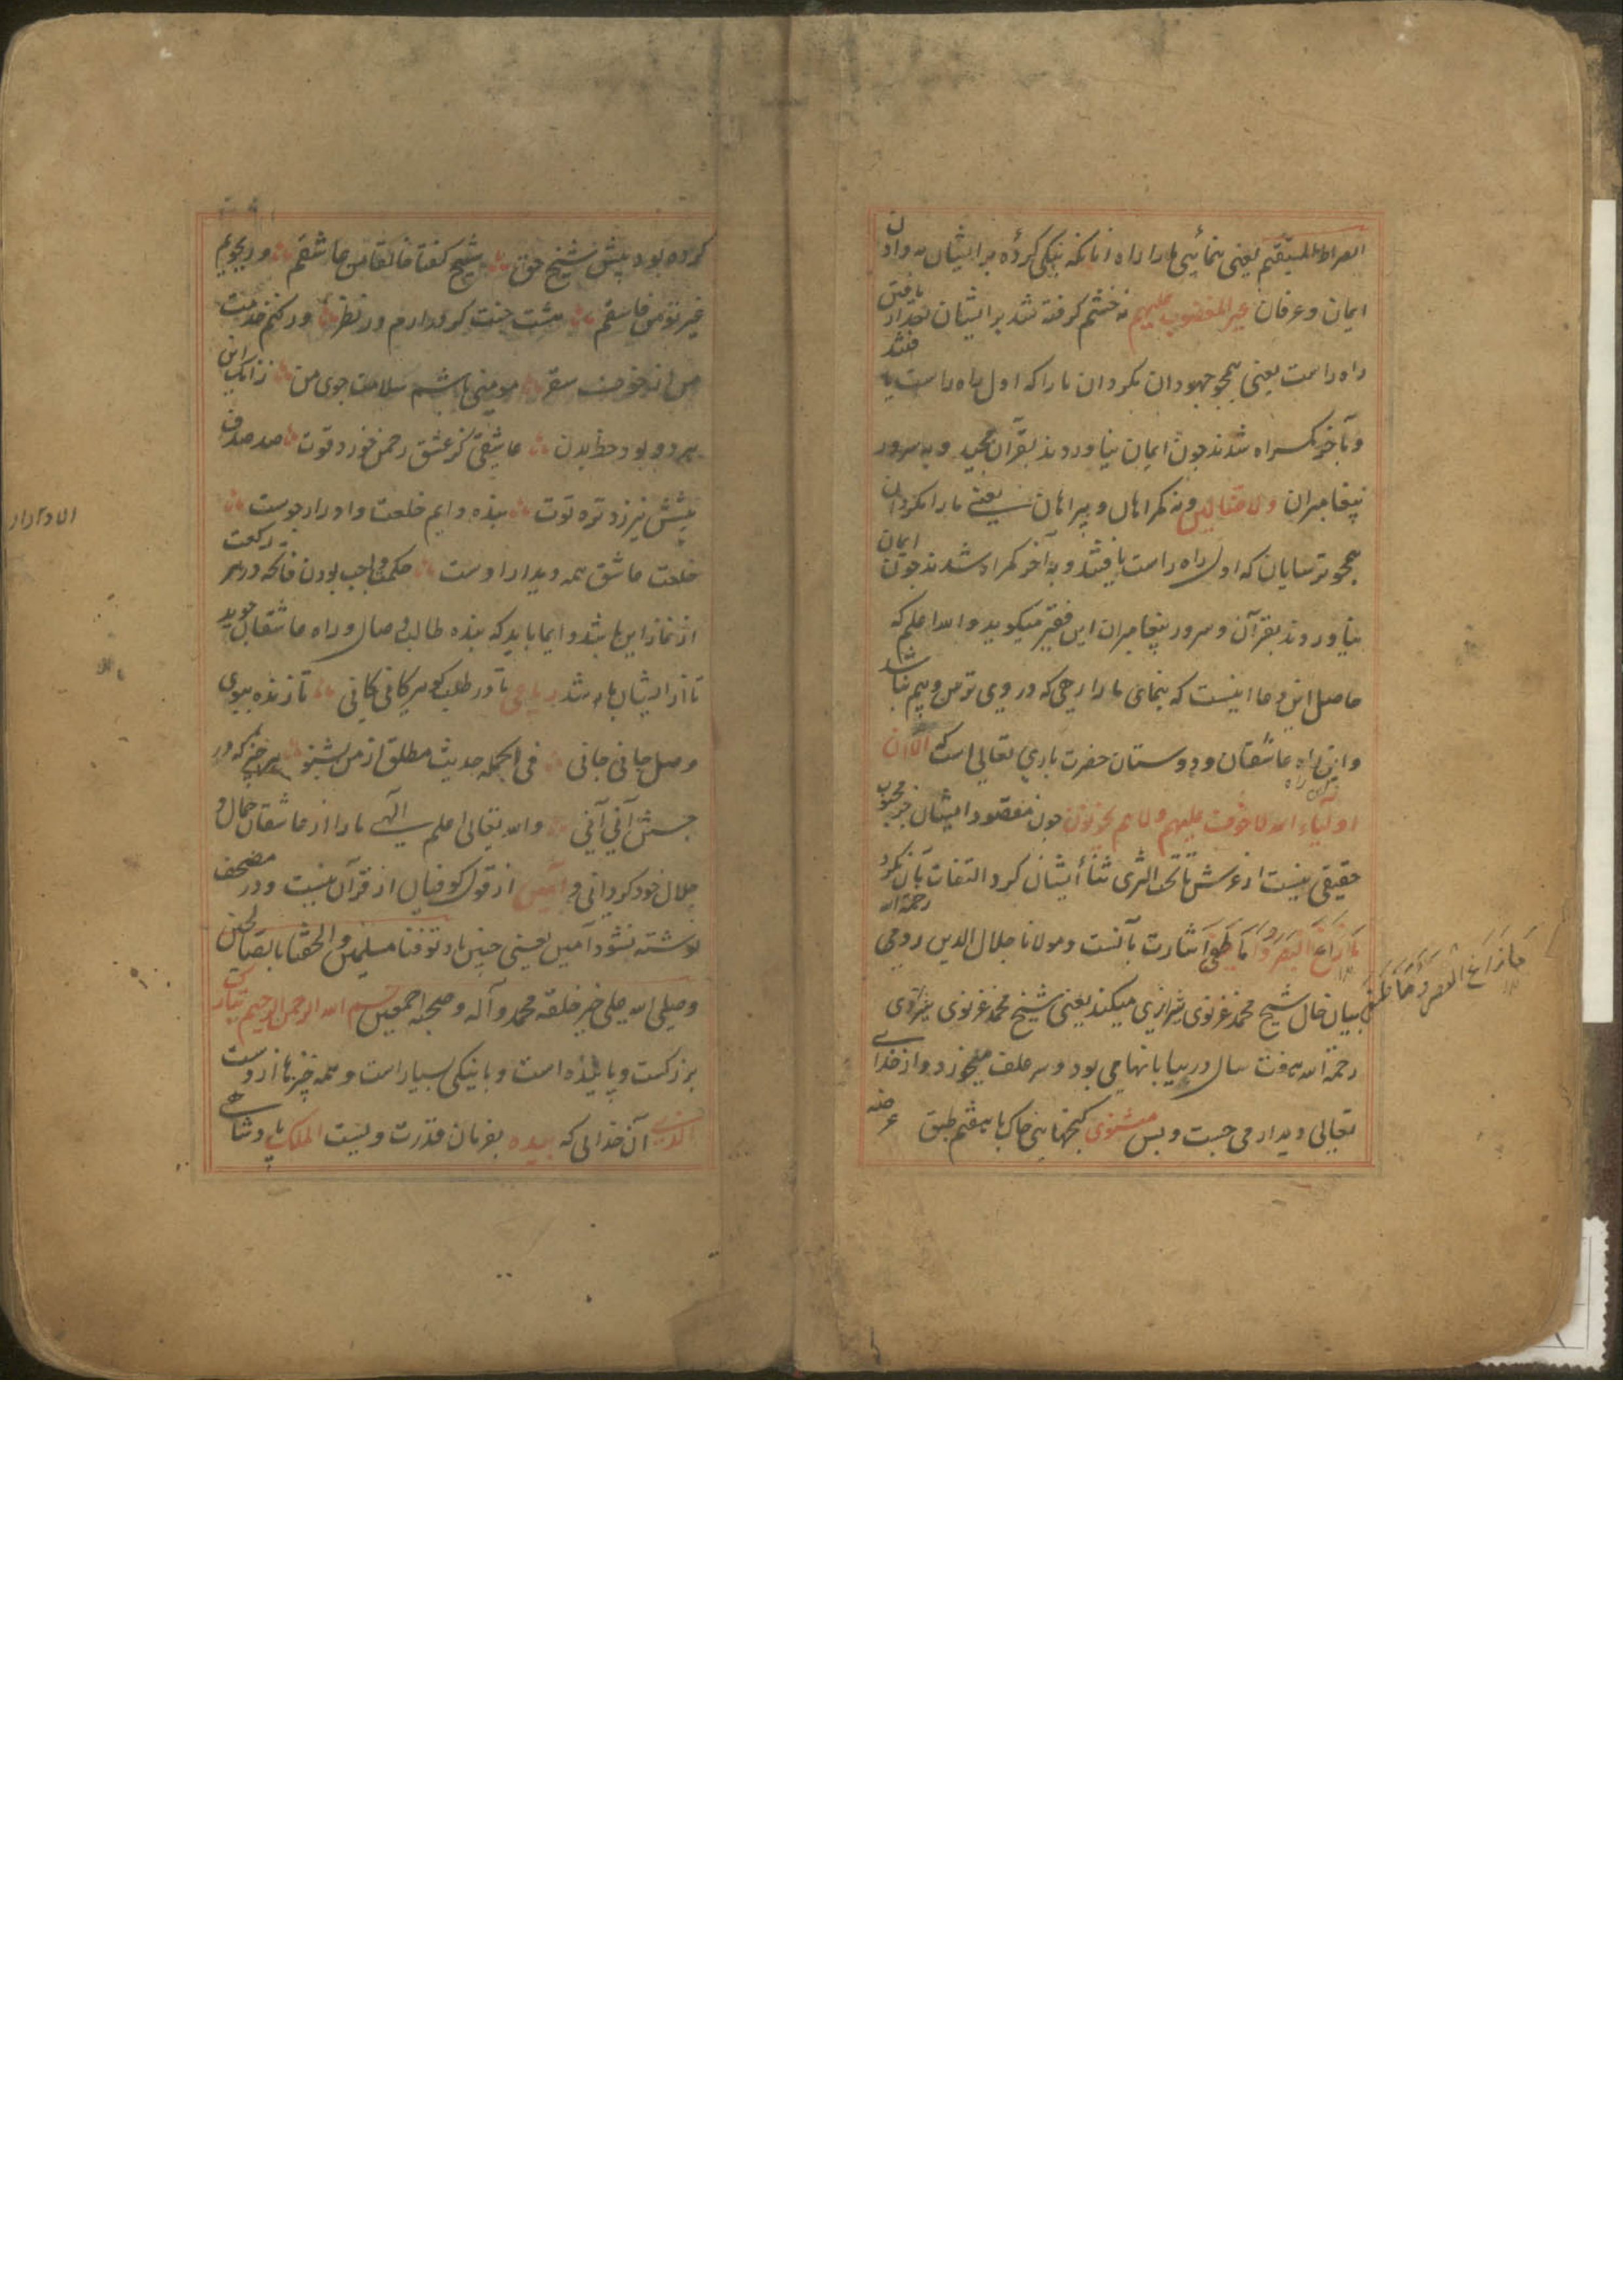 الصراط المستقیم یعنی بنمائی ما را راه آنانکه نیکی کردهٔ بر ایشان به دادن
ایمان و عرفان غیر المغضوب علیهم نه خشم کرفته شد بر ایشان بعد از یافتن
راه راست یعنی همچو جهودان مکردان ما را که اول راه راست یافتند
و بآخر کمراه شدند چون ایمان نیاوردند بقرآن مجید و به سرور
پیغامبران ولا الضالین و نه کمراهان و بیراهان یعنی ما را مکردان
همچو ترسایان که اول راه راست یافتند و به آخر کمراه شدند چون ایمان
نیاوردند بقرآن و سرور پیغامبران این فقیر میکوید والله اعلم که
حاصل این دعا اینست که بنمای ما را رهی که در وی ترس و بیم نباشد
و این راه عاشقان و دوستان حضرت باری تعالی است که الا ان
اولیاء الله لا خوف علیهم ولا هم یحزنون چون مقصود ایشان جز محبوب
حقیقی نیست از عرش تا تحت الثری ایشان کرد التفات بآن نکرد
ما زاغ البصر و ما طغی اشارت بآنست و مولانا جلال الدین رومی رحمة الله
بیان حال شیخ محمد غزنوی شرازی میکند یعنی شیخ محمد غزنوی
رحمة الله هفت سال در بیابانها می بود و سر علف میخورد و از خدای
تعالی دیدار می جست و بس مثنوی کنجهای خاک تا هفتم طبق عرضه
ما زاغ البصر و ما طغی
کرده بود پیش شیخ حق شیخ کفتا خالقا من عاشقم ور بجویم
غیر تو من فاسقم هشت جنت کر درارم در نظر ور کنم خدمت
من از خوف سقر مومنی باشم سلامت جوی من زانکه این
هر دو بود حظ بدن عاشقی کز عشق رحمن خورد قوت صد
پیش نیرزد تره توت بنده دایم خلعت و ادرار جوست
خلعت عاشق همه دیدار اوست حکمت واجب بودن فاتحه در هر رکعت
از نماز این باشد و ایما باید که بنده طالب وصال و راه عاشقان جوید
تا از ایشان باشد رباعی تا در طلب کوهر کانی کانی تا زنده ببوی
وصل جانی جانی فی الجمله حدیث مطلق از من بشنو هر چیز که در
جستن آنی آنی والله تعالی اعلم الهی ما را از عاشقان جمال و
جلال خود کردانی و آمین از قول کوفیان از قرآن نیست و در مصحف
نوشته نشود آمین یعنی چنین باد توفنا مسلمین و الحقنا بالصالحین
و صلی الله علی خیر خلقه محمد و آله و صحبه اجمعین بسم الله الرحمن الرحیم تبارک
بزرکست و پاینده است و با نیکی بسیار است و همه چیزها از وست
الذی آن خدایی که بیده بفرمان قدرت ویست الملک پادشاهی